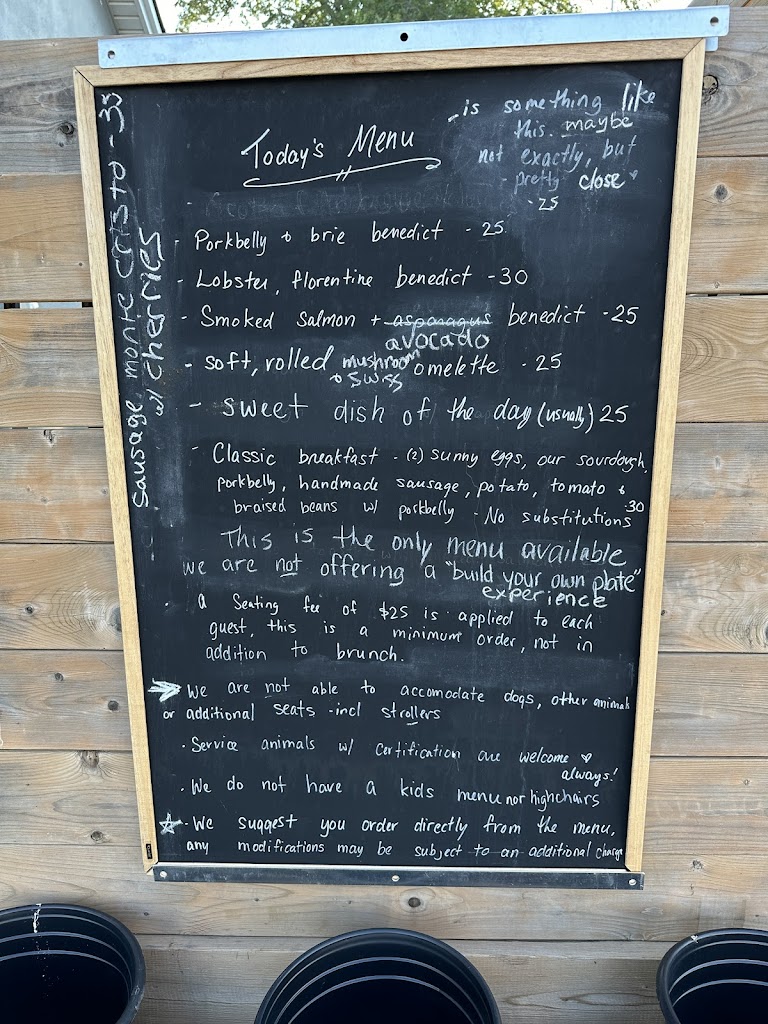 Today's Menu
- is something like
this. maybe
not exactly, but
pretty close
- 25
- Porkbelly & brie benedict - 25
- Lobster, florentine benedict - 30
- Smoked Salmon + asparagus benedict - 25
avocado
- soft, rolled mushroom omelette - 25
& swiss
- sweet dish of the day (usually) 25
- Classic breakfast - (2) sunny eggs, our sourdough,
porkbelly, handmade sausage, potato, tomato &
braised beans w/ porkbelly - No substitutions 30
This is the only menu available
we are not offering a "build your own plate"
experience
. a Seating fee of $25 is applied to each
guest, this is a minimum order, not in
addition to brunch.
→ We are not able to accomodate dogs, other animals
or additional seats - incl strollers
· Service animals w/ certification are welcome ♡
always!
· We do not have a kids menu nor highchairs
☆ · We suggest you order directly from the menu,
any modifications may be subject to an additional charge
- Sausage monte cristo - 33
w/ cherries